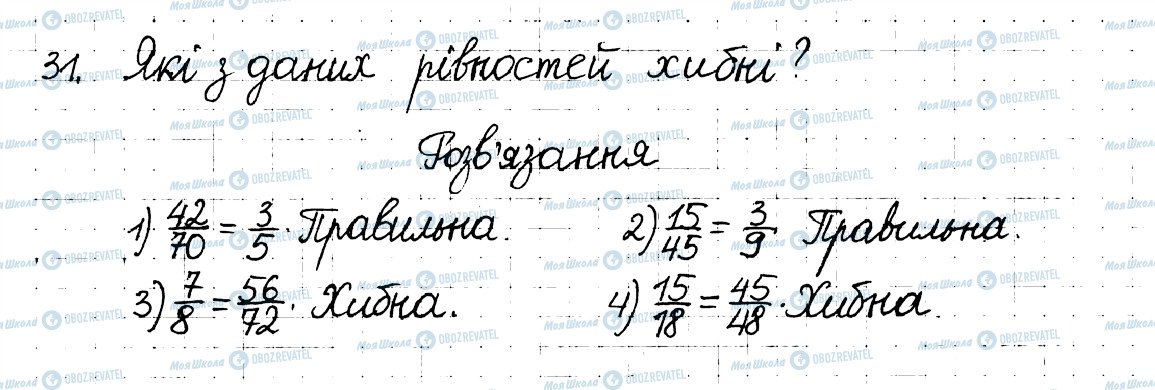 31. Які з даних рівностей хибні?
Розв'язання
1) 42/70 = 3/5. Правильна. 2) 15/45 = 3/9. Правильна.
3) 7/8 = 56/72. Хибна. 4) 15/18 = 45/48. Хибна.
Моя Школа OBOZREVATEL